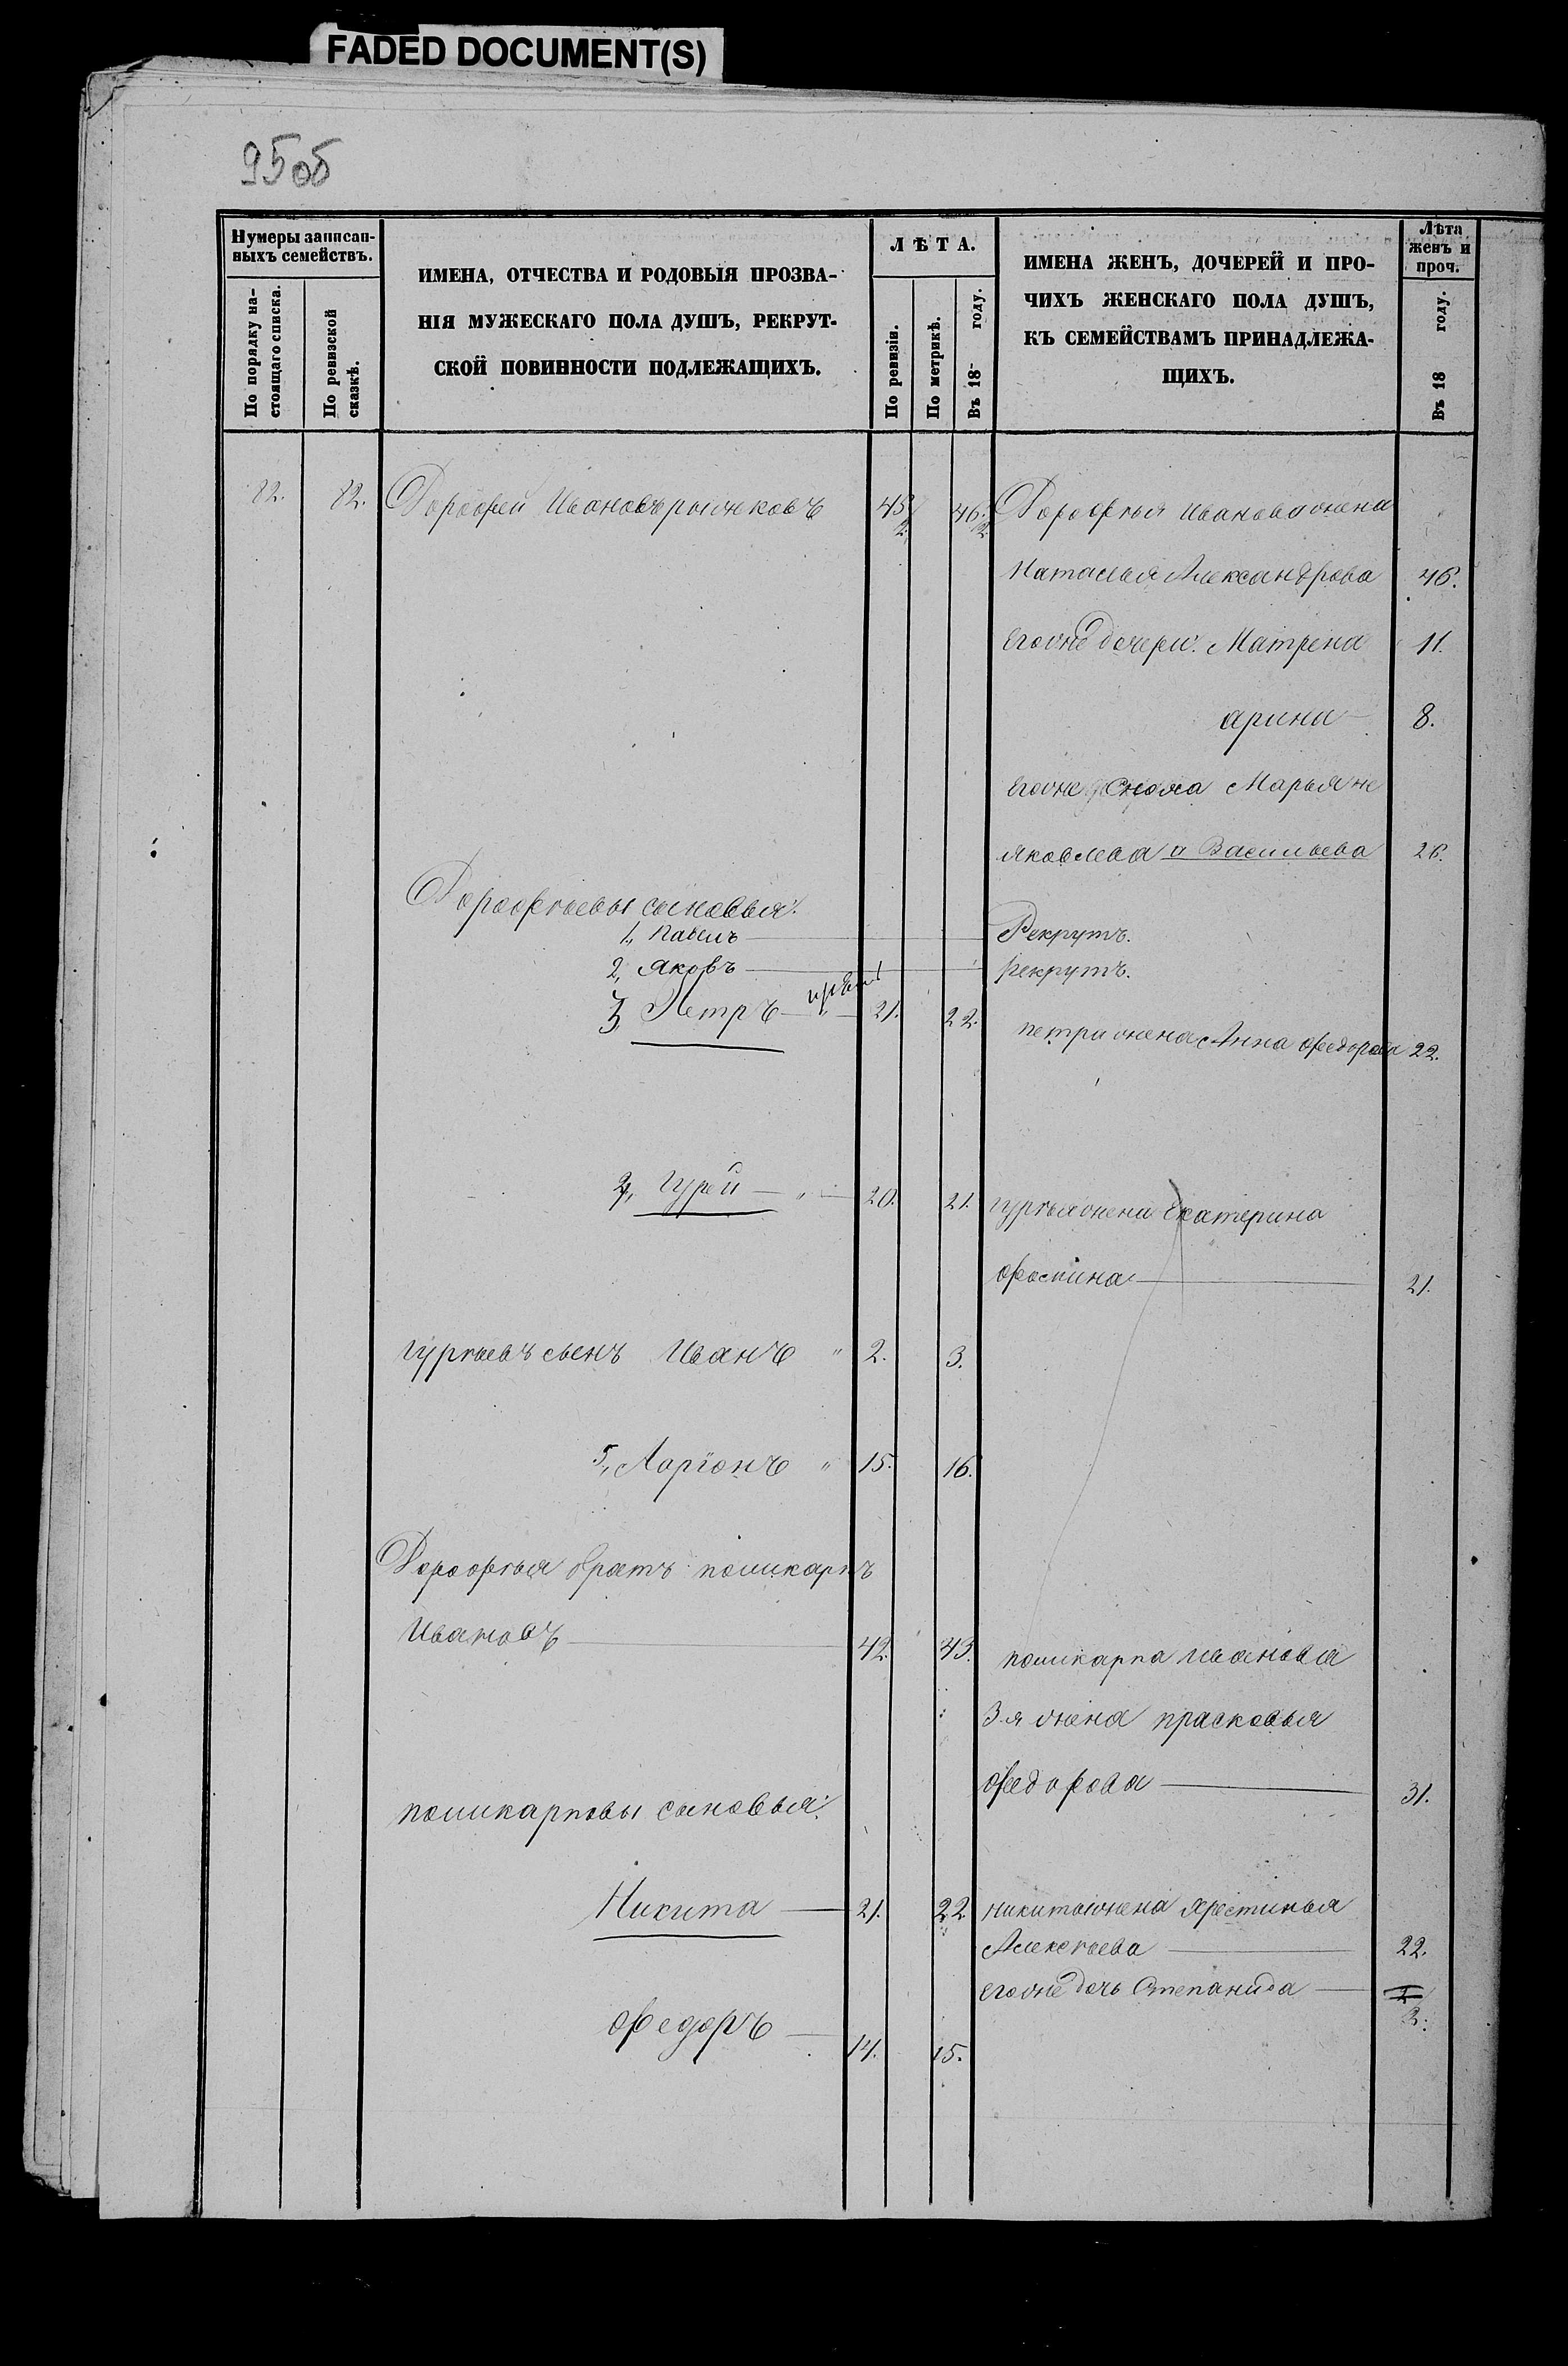 FADED DOCUMENT(S)
95об
Нумеры записан-
ныхъ семействъ.
По порядку на-
стоящаго списка.
По ревизской
сказкѣ.
ИМЕНА, ОТЧЕСТВА И РОДОВЫЯ ПРОЗВА-
НІЯ МУЖЕСКАГО ПОЛА ДУШЪ, РЕКРУТ-
СКОЙ ПОВИННОСТИ ПОДЛЕЖАЩИХЪ.
ЛѢТА.
По ревизіи.
По метрикѣ.
Въ 18 году.
ИМЕНА ЖЕНЪ, ДОЧЕРЕЙ И ПРО-
ЧИХЪ ЖЕНСКАГО ПОЛА ДУШЪ,
КЪ СЕМЕЙСТВАМЪ ПРИНАДЛЕЖА-
ЩИХЪ.
Лѣта
женъ и
проч.
Въ 18 году.
82. 82. Дорофей Ивановъ 45 46. Дорофѣя Иванова жена
Наталья Александрова 46.
Егоже дочери: Матрена 11.
арина 8.
Егоже сноха Марья не
Яковлева а Васильева 26.
Дорофѣевы сыновья:
1, Павелъ Рекрутъ.
2, Яковъ рекрутъ.
3, Петръ " 21. 22. петра жена Анна Федорова 22.
4, Гурей " 20. 21. гурья жена Екатерина
фоспина 21.
гурьевъ сынъ Иванъ " 2. 3.
5, Ларіонъ " 15. 16.
Дорофѣя братъ поликарпъ
Ивановъ 42. 43. поликарпа иванова
3-я жена прасковья
федорова 31.
поликарповы сыновья:
Никита 21. 22 никиты жена
Алексѣева 22.
егоже дочь Степанида 2.
федоръ 14. 15.